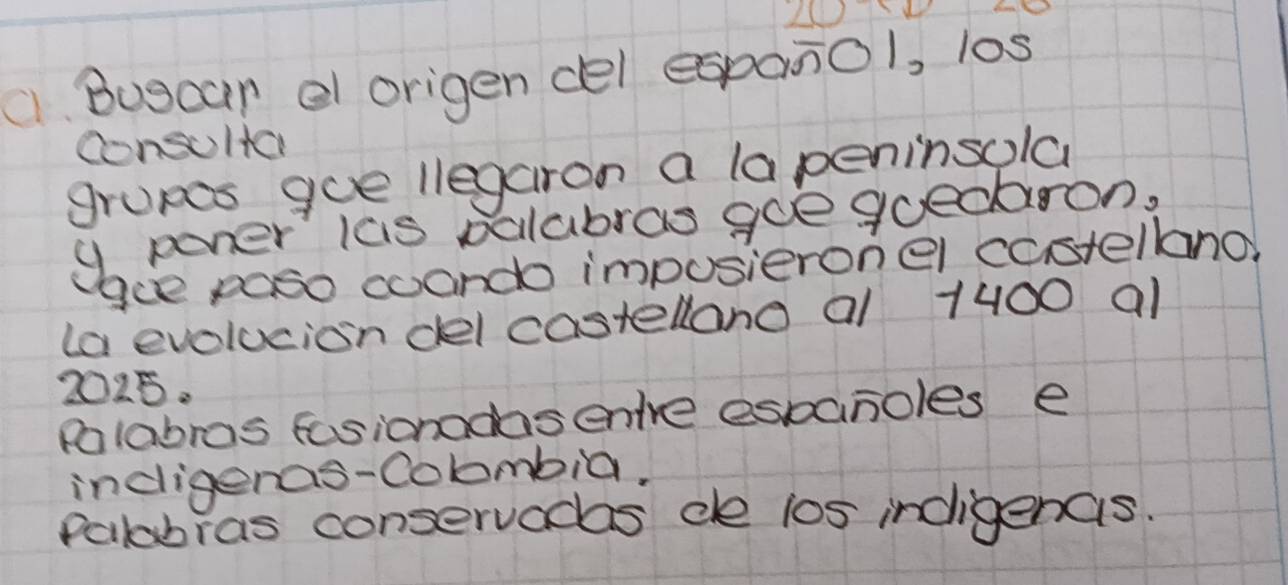 a. Buscar el origen del español, los
consulta
grupos que llegaron a la peninsula
y poner las palabras que quedaron,
y que paso cuando impusieron el castellano,
La evolución del castellano al 1400 al
2025.
Palabras fusionadas entre españoles e
indigenas-Colombia.
Palabras conservadas de los indigenas.